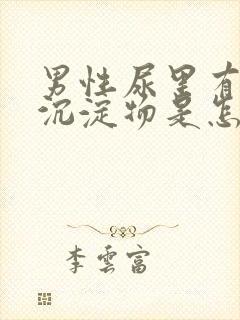 男性尿里有
沉淀物是怎
李雲富